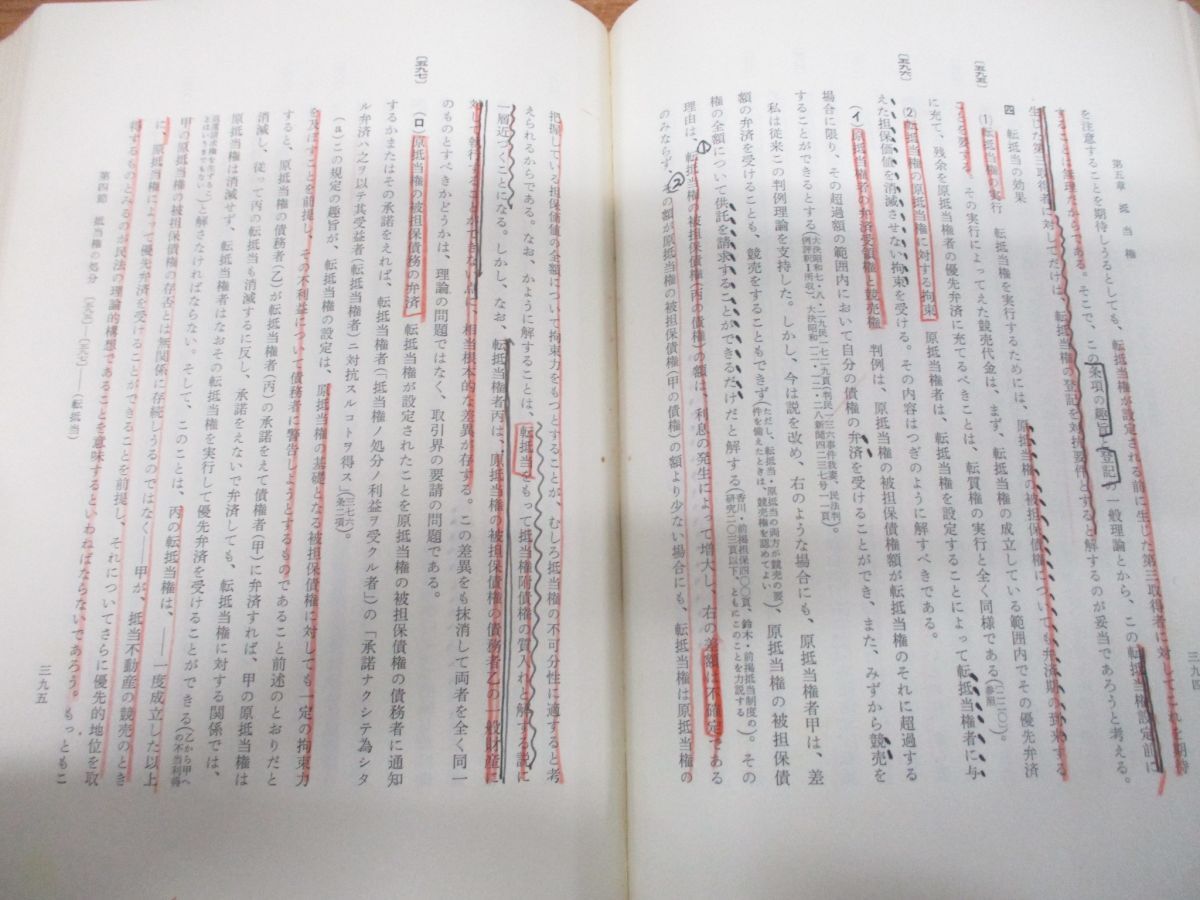 第五章 抵当権
三九四
を注意することを期待しうるとしても、転抵当権が設定される前に生じた第三取得者に対してこれを期待
することは無理だからである。そこで、この条項の趣旨と登記の一般理論とから、この転抵当権設定前に
生じた第三取得者に対してだけは、転抵当権の登記を対抗要件とすると解するのが妥当であろうと考える。
四 転抵当の効果
〔五九五〕
(1) 転抵当権の実行 転抵当権を実行するためには、原抵当権の被担保債権についても弁済期の到来する
ことを要する。その実行によってえた競売代金は、まず、転抵当権の成立している範囲内でその優先弁済
に充て、残余を原抵当権者の優先弁済に充てるべきことは、転質権の実行と全く同様である(〔二二〇〕参照)。
〔五九六〕
(2) 転抵当権の原抵当権に対する拘束 原抵当権者は、転抵当権を設定することによって転抵当権者に与
えた担保価値を消滅させない拘束を受ける。その内容はつぎのように解すべきである。
(イ) 原抵当権者の弁済受領権と競売権 判例は、原抵当権の被担保債権額が転抵当権のそれに超過する
場合に限り、その超過額の範囲内において自分の債権の弁済を受けることができ、また、みずから競売を
することができるとする
私は従来この判例理論を支持した。しかし、今は説を改め、右のような場合にも、原抵当権者甲は、差
額の弁済を受けることも、競売をすることもできず(ただし、転抵当・原抵当の両方が競売の要件を備えたときは、競売権を認めてよい)、原抵当権の被担保債
権の全額について供託を請求することができるだけだと解する(香川・前掲担保四〇〇頁、鈴木・前掲抵当制度の研究二〇三頁以下、ともにこのことを力説する)。その
理由は、①転抵当権の被担保債権(丙の債権)の額は、利息の発生によって増大し、右の差額は不確定である
のみならず、②その額が原抵当権の被担保債権(甲の債権)の額より少ない場合にも、転抵当権は原抵当権の
把握している担保価値の全額について拘束力をもつとすることが、むしろ抵当権の不可分性に適すると考
えられるからである。なお、かように解することは、転抵当をもって抵当権附債権の質入れと解する説に
一層近づくことになる。しかし、なお、転抵当権者丙は、原抵当権の被担保債権の債務者乙の一般財産に
対して執行することができない点に、相当根本的な差異が存する。この差異をも抹消して両者を全く同一
のものとすべきかどうかは、理論の問題ではなく、取引界の要請の問題である。
〔五九七〕
(ロ) 原抵当権の被担保債務の弁済 転抵当権が設定されたことを原抵当権の被担保債権の債務者に通知
するかまたはその承諾をえれば、転抵当権者(「抵当権ノ処分ノ利益ヲ受クル者」)の「承諾ナクシテ為シタ
ル弁済ハ之ヲ以テ其受益者(転抵当権者)ニ対抗スルコトヲ得ス」(三七六条二項)。
(a) この規定の趣旨が、転抵当権の設定は、原抵当権の基礎となる被担保債権に対しても一定の拘束力
を及ぼすことを前提し、その不利益について債務者に警告しようとするものであること前述のとおりだと
すると、原抵当権の債務者(乙)が転抵当権者(丙)の承諾をえて債権者(甲)に弁済すれば、甲の原抵当権は
消滅し、従って丙の転抵当も消滅するに反し、承諾をえないで弁済しても、転抵当権に対する関係では、
原抵当権は消滅せず、転抵当権者はなおその転抵当権を実行して優先弁済を受けることができる(乙から甲への不当利得返還請求権を生ずることはいうまでもない。)と解さなければならない。そして、このことは、丙の転抵当権は、――一度成立した以上
甲の原抵当権の被担保債権の存否とは無関係に存続しうるのではなく――甲が、抵当不動産の競売のとき
に、原抵当権によって優先弁済を受けることができることを前提し、それについてさらに優先的地位を取
得するものとみるのが民法の理論的構想であることを意味するといわねばならないであろう。もっともこ
第四節 抵当権の処分 〔五九五〕―〔五九七〕 ――(転抵当)
三九五